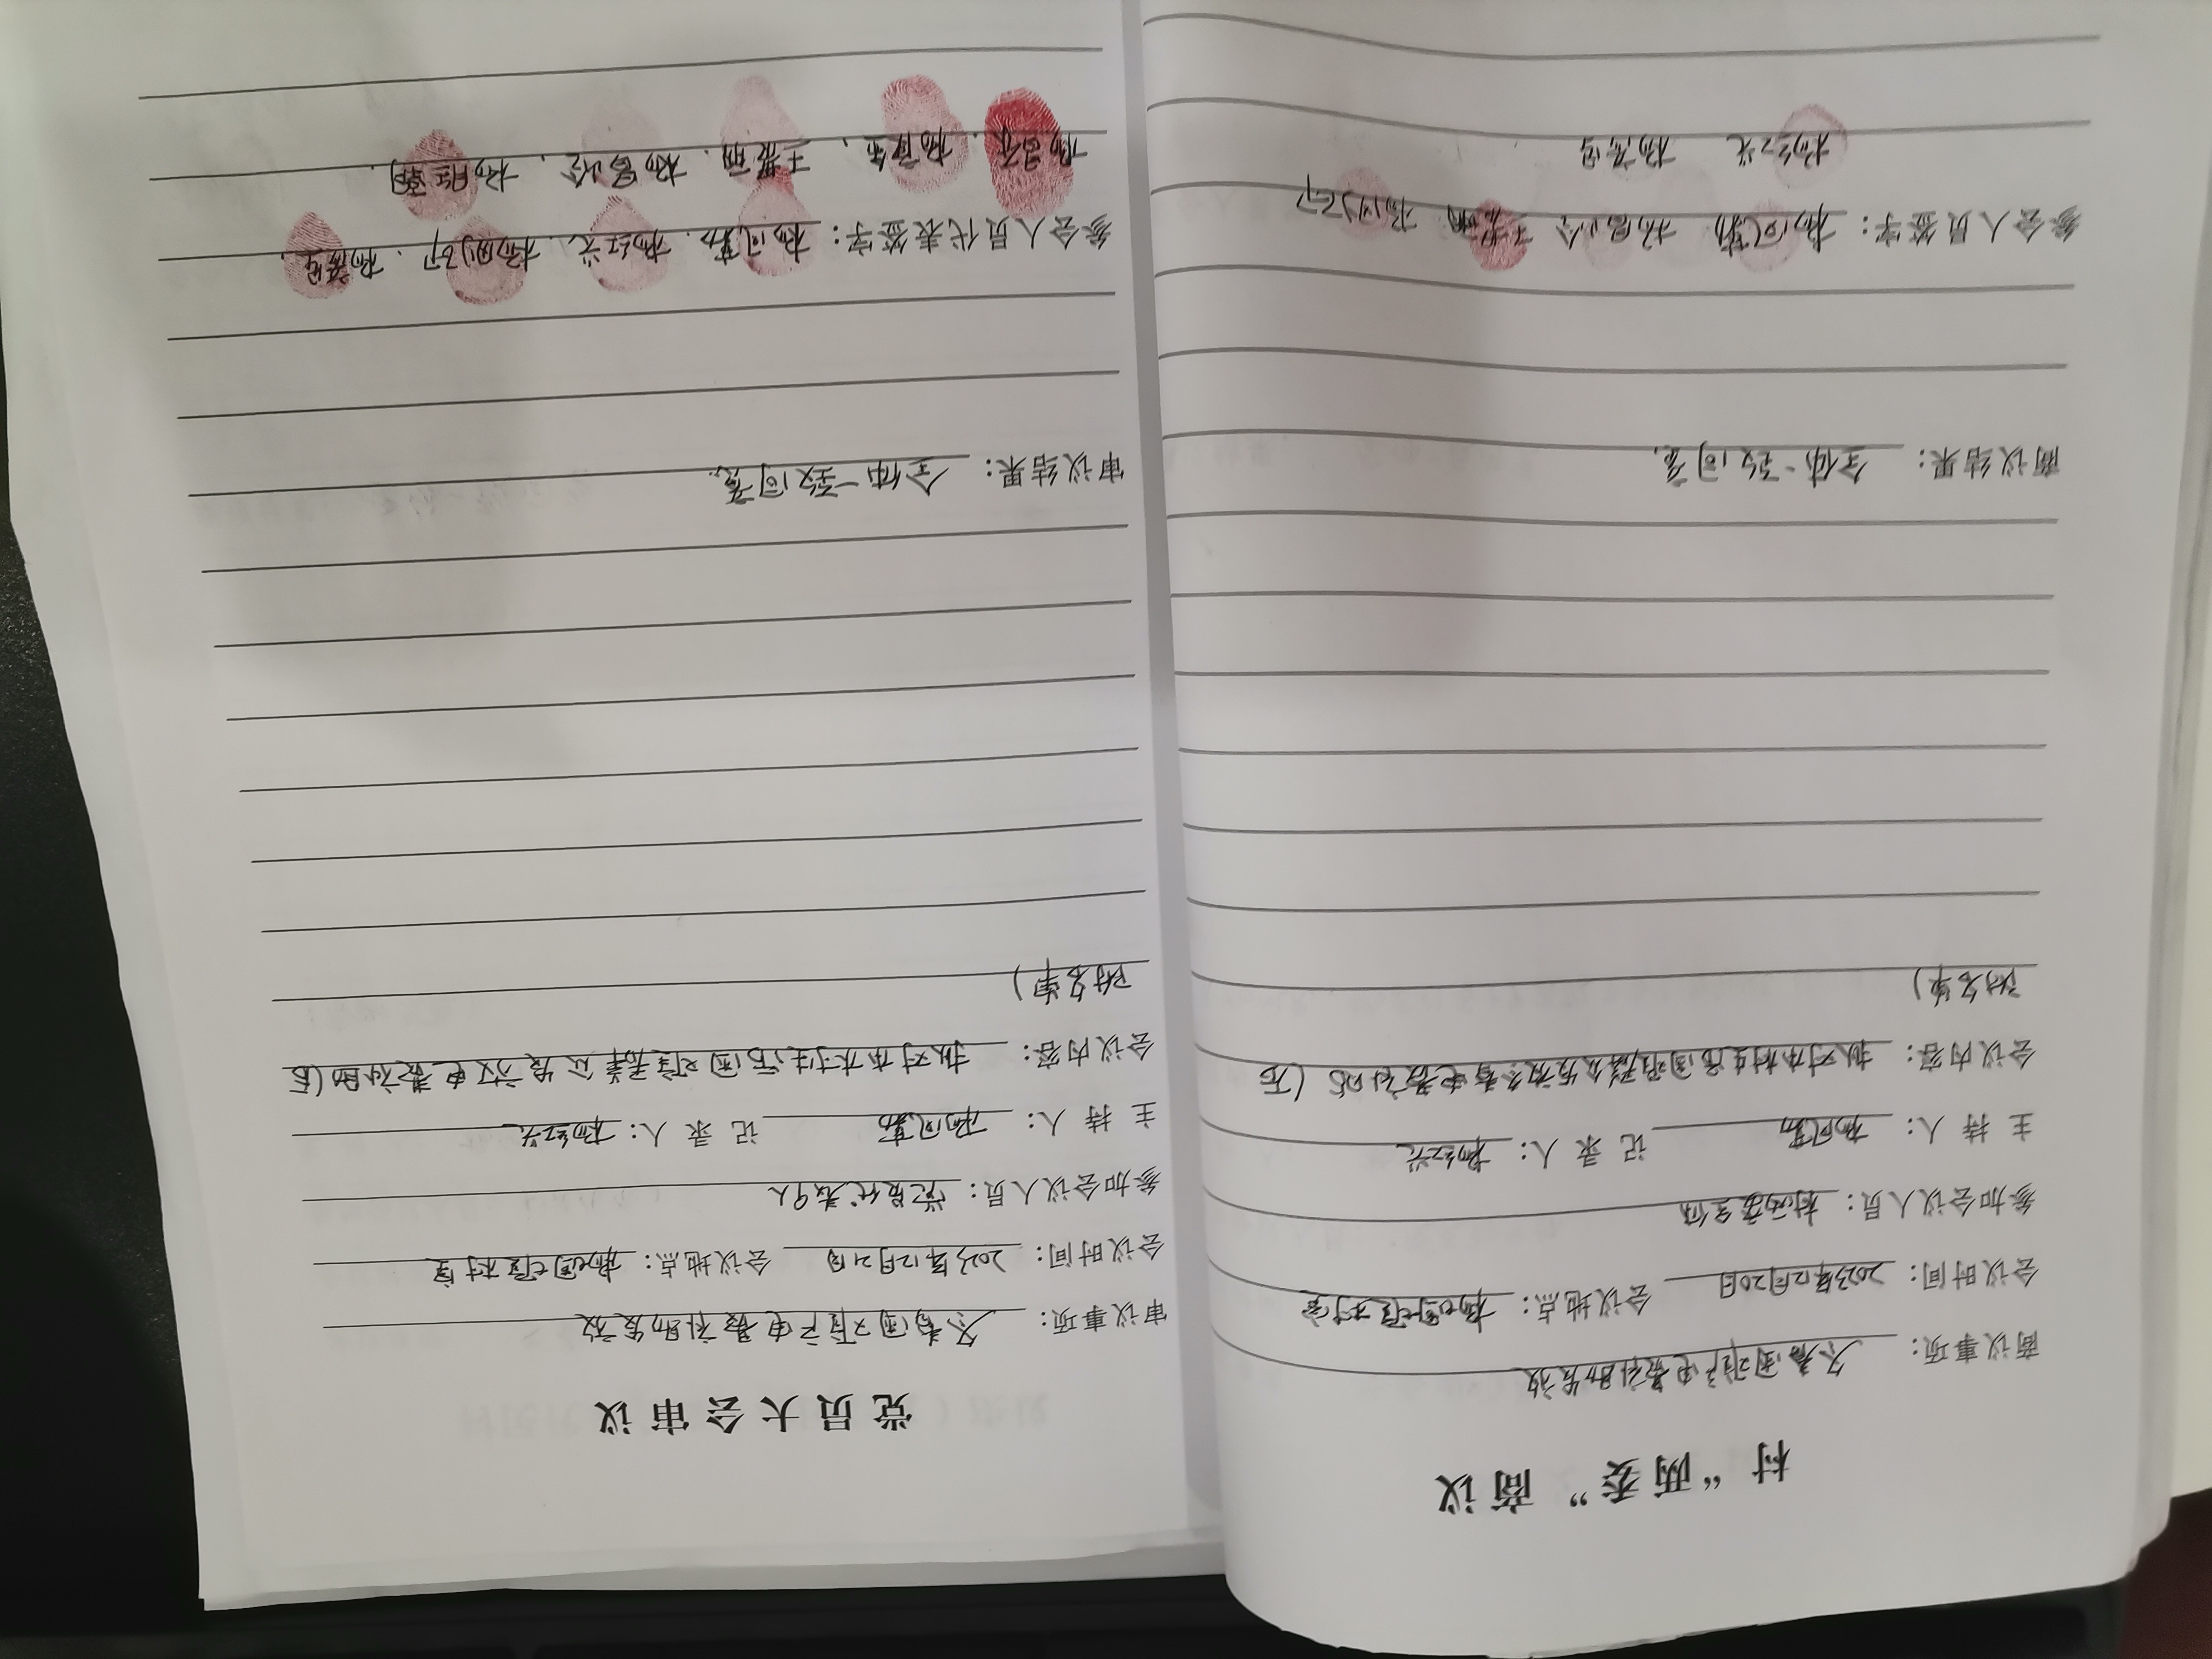 村“两委”商议
商议事项：冬春困难户电费补助发放
会议时间：2023年12月20日 会议地点：杨圈堆村室
参加会议人员：村两委全体
主持人：杨凤勤 记录人：杨红兴
会议内容：拟对本村生活困难群众发放冬春电费补助（后
附名单）
商议结果：全体一致同意.
参会人员签字：杨凤勤 杨昌岭 杨刚印
杨红兴
党员大会审议
审议事项：冬春困难户电费补助发放
会议时间：2023年12月21日 会议地点：杨圈堆村室
参加会议人员：党员代表9人
主持人：杨凤勤 记录人：杨红兴
会议内容：拟对本村生活困难群众发放电费补助（后
附名单）
审议结果：全体一致同意.
参会人员代表签字：杨凤勤、杨红兴、杨刚印、
杨昌乐、杨庚金、杨昌岭、杨胜朝.